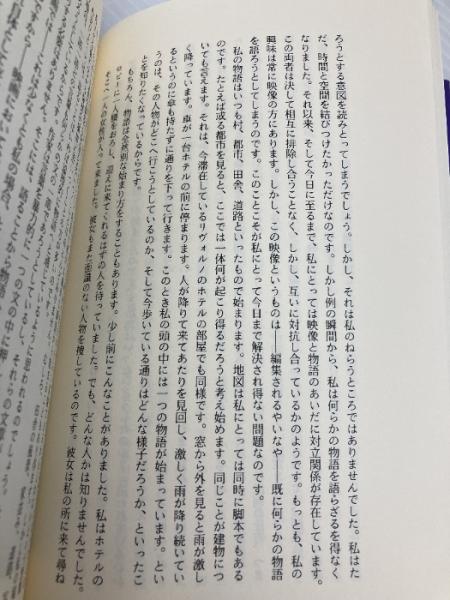 ろうとする意図を読みとってしまうでしょう。しかし、それは私のねらうところではありません。私はた
だ、時間と空間を結びつけたかっただけなのです。しかし例の瞬間から、私は何らかの物語を語らざるを得なく
なりました。それ以来、そして今日に至るまで、私にとっては映像と物語のあいだに対立関係が存在しています。
この両者は決して相互に排除し合うことなく、しかし、互いに対抗し合っているかのようです。もっとも、私の
興味は常に映像の方にあります。しかし、この映像というものは――編集されるやいなや――既に何らかの物語
を語ろうとしてしまうのです。このことこそが私にとって今日まで解決され得ない問題なのです。
私の物語はいつも村、都市、田舎、道路といったもので始まります。地図は私にとっては同時に脚本でもある
のです。たとえば或る都市を見ると、ここでは一体何が起こり得るだろうと考え始めます。同じことが建物につ
いても言えます。それは、今滞在しているリヴォルノのホテルの部屋でも同様です。窓から外を見ると雨が激し
く降っています。車が一台ホテルの前に停まります。人が降りて来てあたりを見回し、激しく雨が降り続いてい
るというのに傘も持たずに通りを下って行きます。このとき私の頭の中には一つの物語が始まっています。とい
うのは、その人物がどこへ行こうとしているのか、そして今歩いている通りはどんな様子だろうか、といったこ
とを知りたくなっているからです。
もちろん、物語は全然別な始まり方をすることもあります。少し前にこんなことがありました。私はホテルの
ロビーに一人腰をおろし、迎えに来てくれるはずの人を待っていました。でも、どんな人かは知りませんでした。
そこへ一人の女性が入って来ました。彼女もまた面識のない人物を捜しているのです。彼女は私の所に来て尋ね